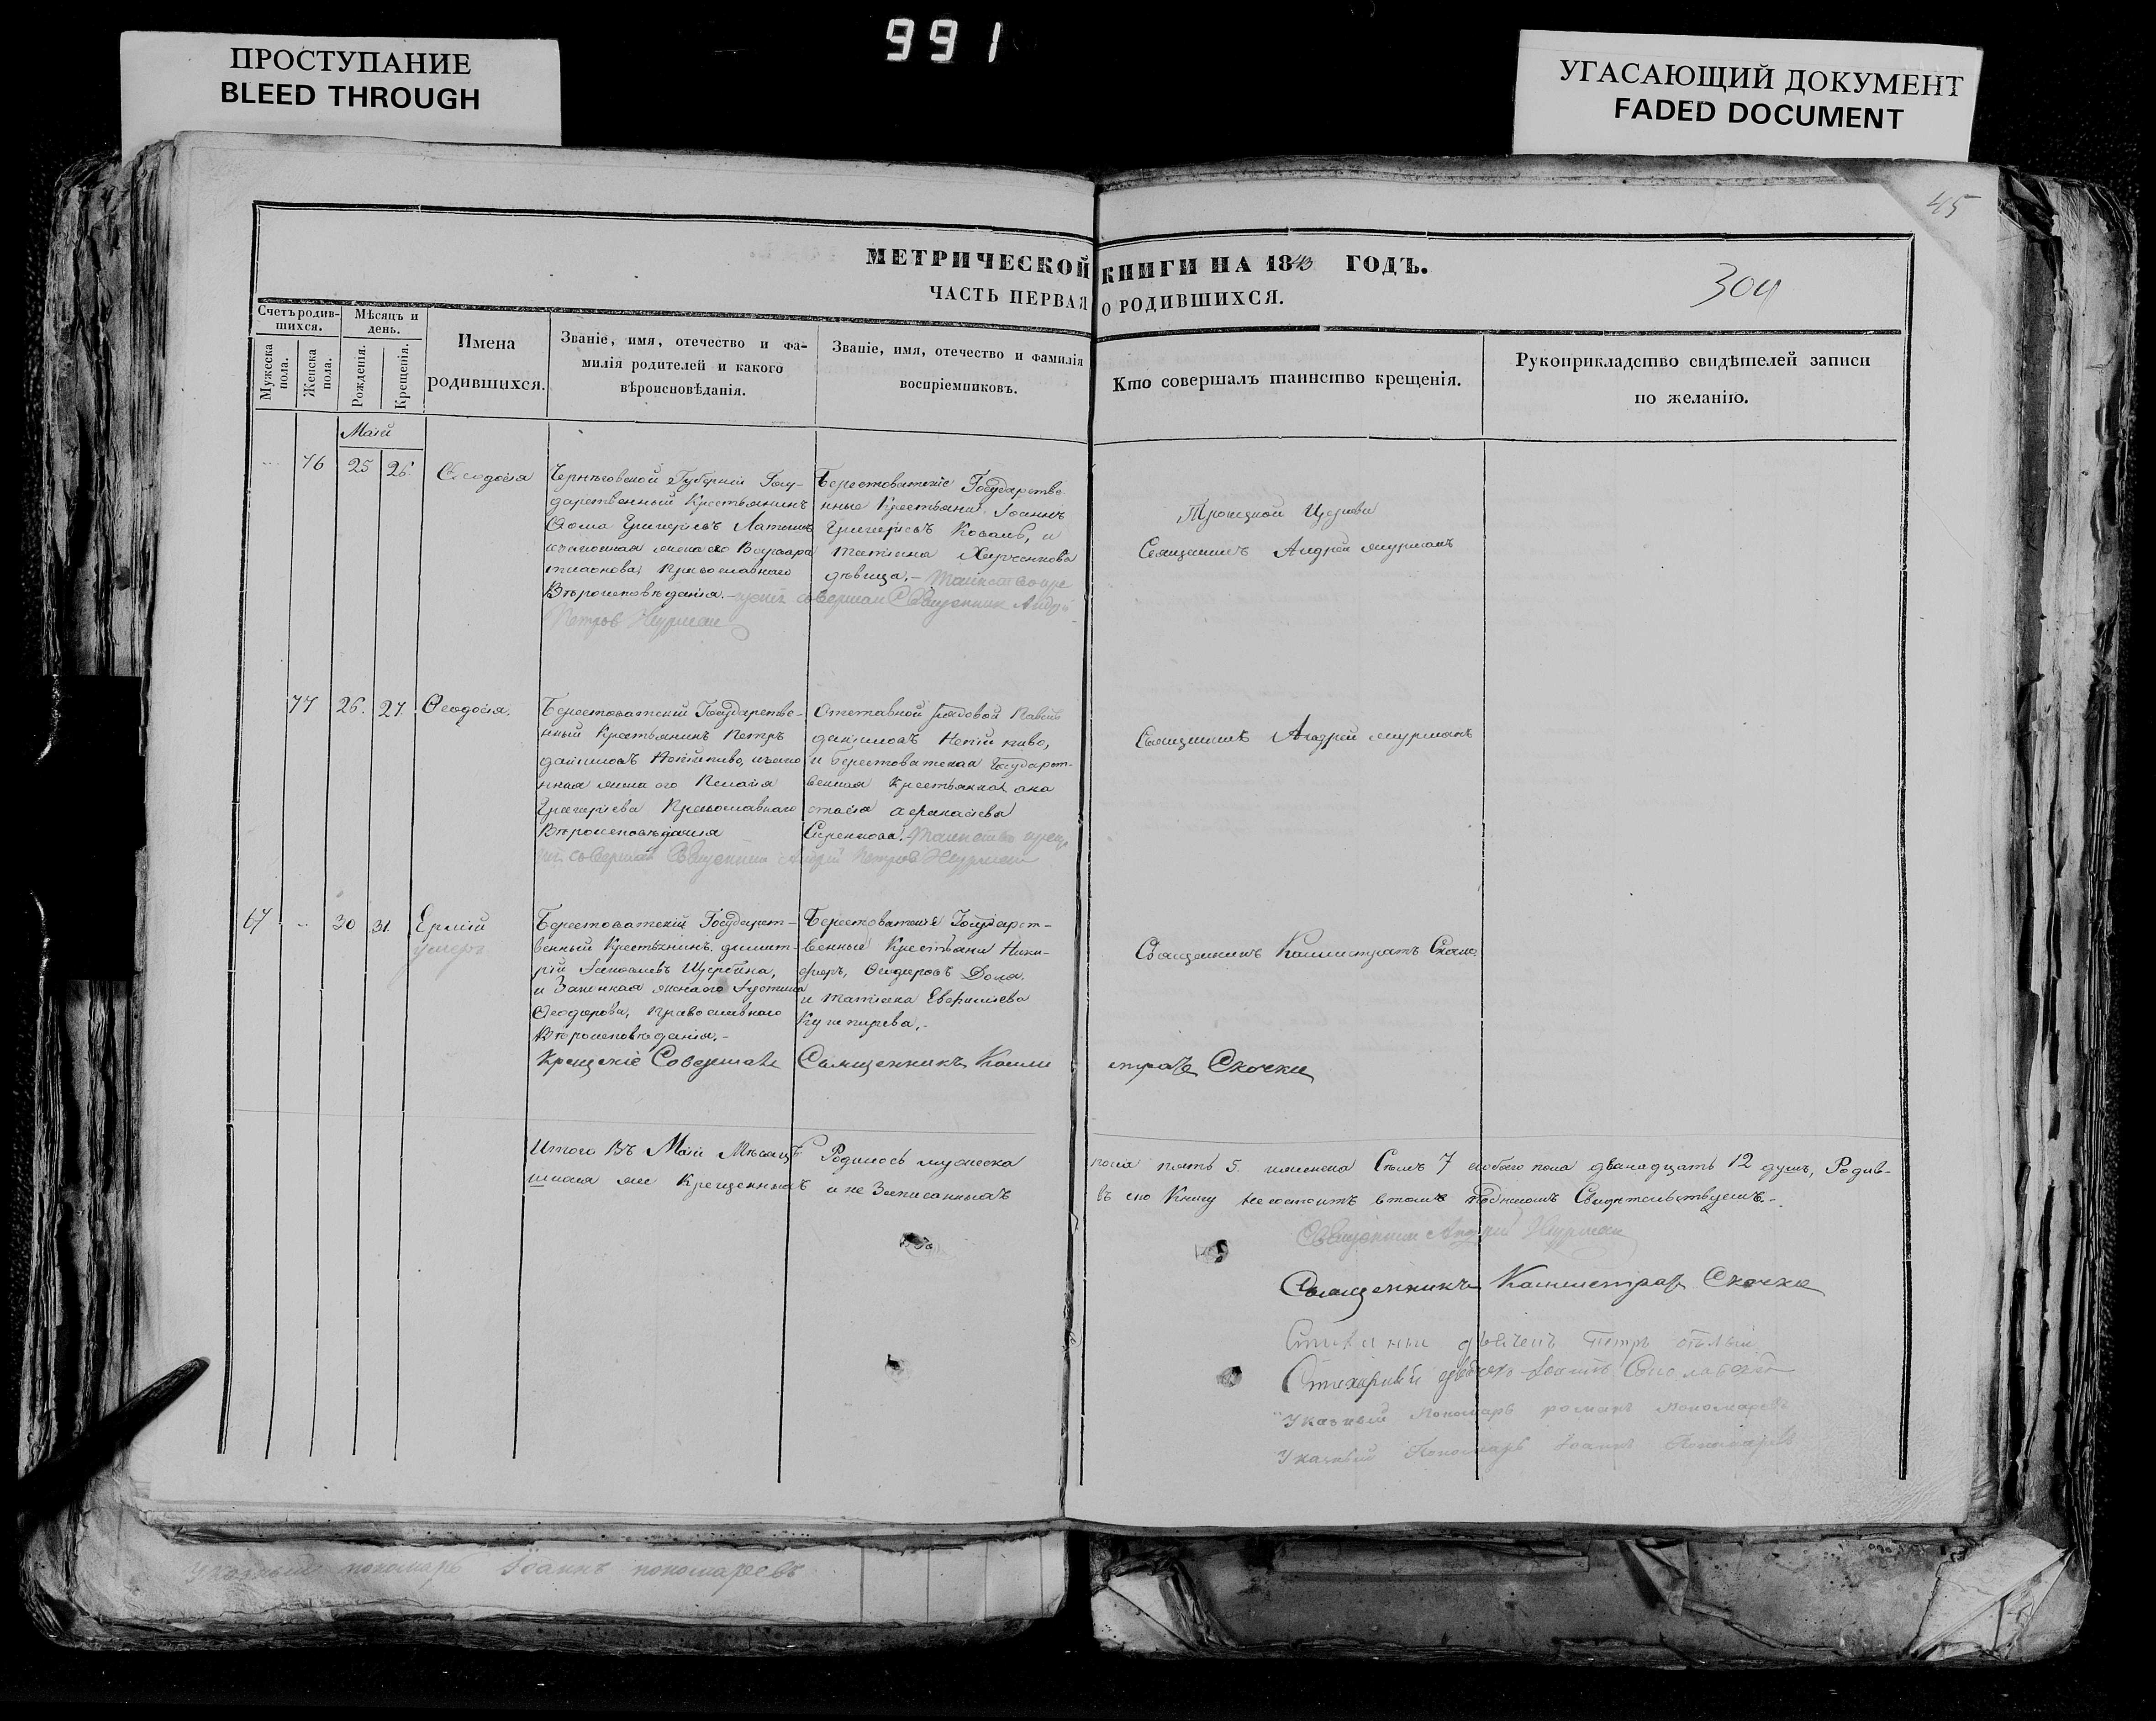 991
ПРОСТУПАНИЕ
BLEED THROUGH
УГАСАЮЩИЙ ДОКУМЕНТ
FADED DOCUMENT
45
МЕТРИЧЕСКОЙ КНИГИ НА 1843 ГОДЪ.
304
ЧАСТЬ ПЕРВАЯ О РОДИВШИХСЯ.
Счетъ родив-
шихся.
Мужеска
пола.
Женска
пола.
Мѣсяцъ и
день.
Рожденія.
Крещенія.
Имена
родившихся.
Званіе, имя, отечество и фа-
милія родителей и какого
вѣроисповѣданія.
Званіе, имя, отечество и фамилія
воспріемниковъ.
Кто совершалъ таинство крещенія.
Рукоприкладство свидѣтелей записи
по желанію.
Маій
76 25 26 Ѳеодосія
Черниговской Губерніи Госу-
дарственный Крестьянинъ
Ѳома Григорьевъ
жена его Варвара
Православнаго
Вѣроисповѣданія.-
Берестоватскіе Государстве
нные Крестьяни Іоаннъ
Григорьевъ Коваль, и
Татіана Харченкова
дѣвица.-
совершал Священник Андрей
Петров
Троицкой Церкви
Священникъ Андрей
77 26. 27 Ѳеодосія.
Берестоватскій Государстве-
нный Крестьянинъ Петръ
и зако
нная жена его Пелагія
Григорьева Православнаго
Вѣроисповѣданія
Отставной Рядовой Павелъ
Даніиловъ
и Берестоватская Государст-
венная Крестьянка Ана
стасія Афанасіева
Сиренкова. Таинство крещ
совершал Священник Андрей Петров
Священникъ Андрей
67 30 31. Ермій
умеръ
Берестоватскій Государст-
венный Крестьянинъ, Димит-
рій Іаковлевъ Щербина,
и Законная жена его Іустина
Ѳеодорова, Православнаго
Вѣроисповѣданія.-
Берестоватскіе Государст-
венные Крестьяни Ники-
форъ, Ѳеодоровъ Доля.
и Татіана Евфиміева
Священникъ Каллистратъ
Крещеніе Совершалъ Священникъ Калли
стратъ Скочка
Итого Въ Маіи Мѣсяцѣ Родилось мужеска
пола пять 5. женска Семь 7 обоего пола дванадцать 12 душъ, Родив-
шихся же Крещенныхъ и не Записанныхъ
въ сію Книгу не состоитъ въ томъ подписомъ Свидѣтельствуемъ.-
Священник Андрей
Священникъ Каллистратъ Скочка
Петръ
Стихарный Іоаннъ
Указный Пономарь Романъ Пономаревъ
Указный Пономарь Іоаннъ Пономаревъ
Указный пономарь Іоаннъ пономаревъ